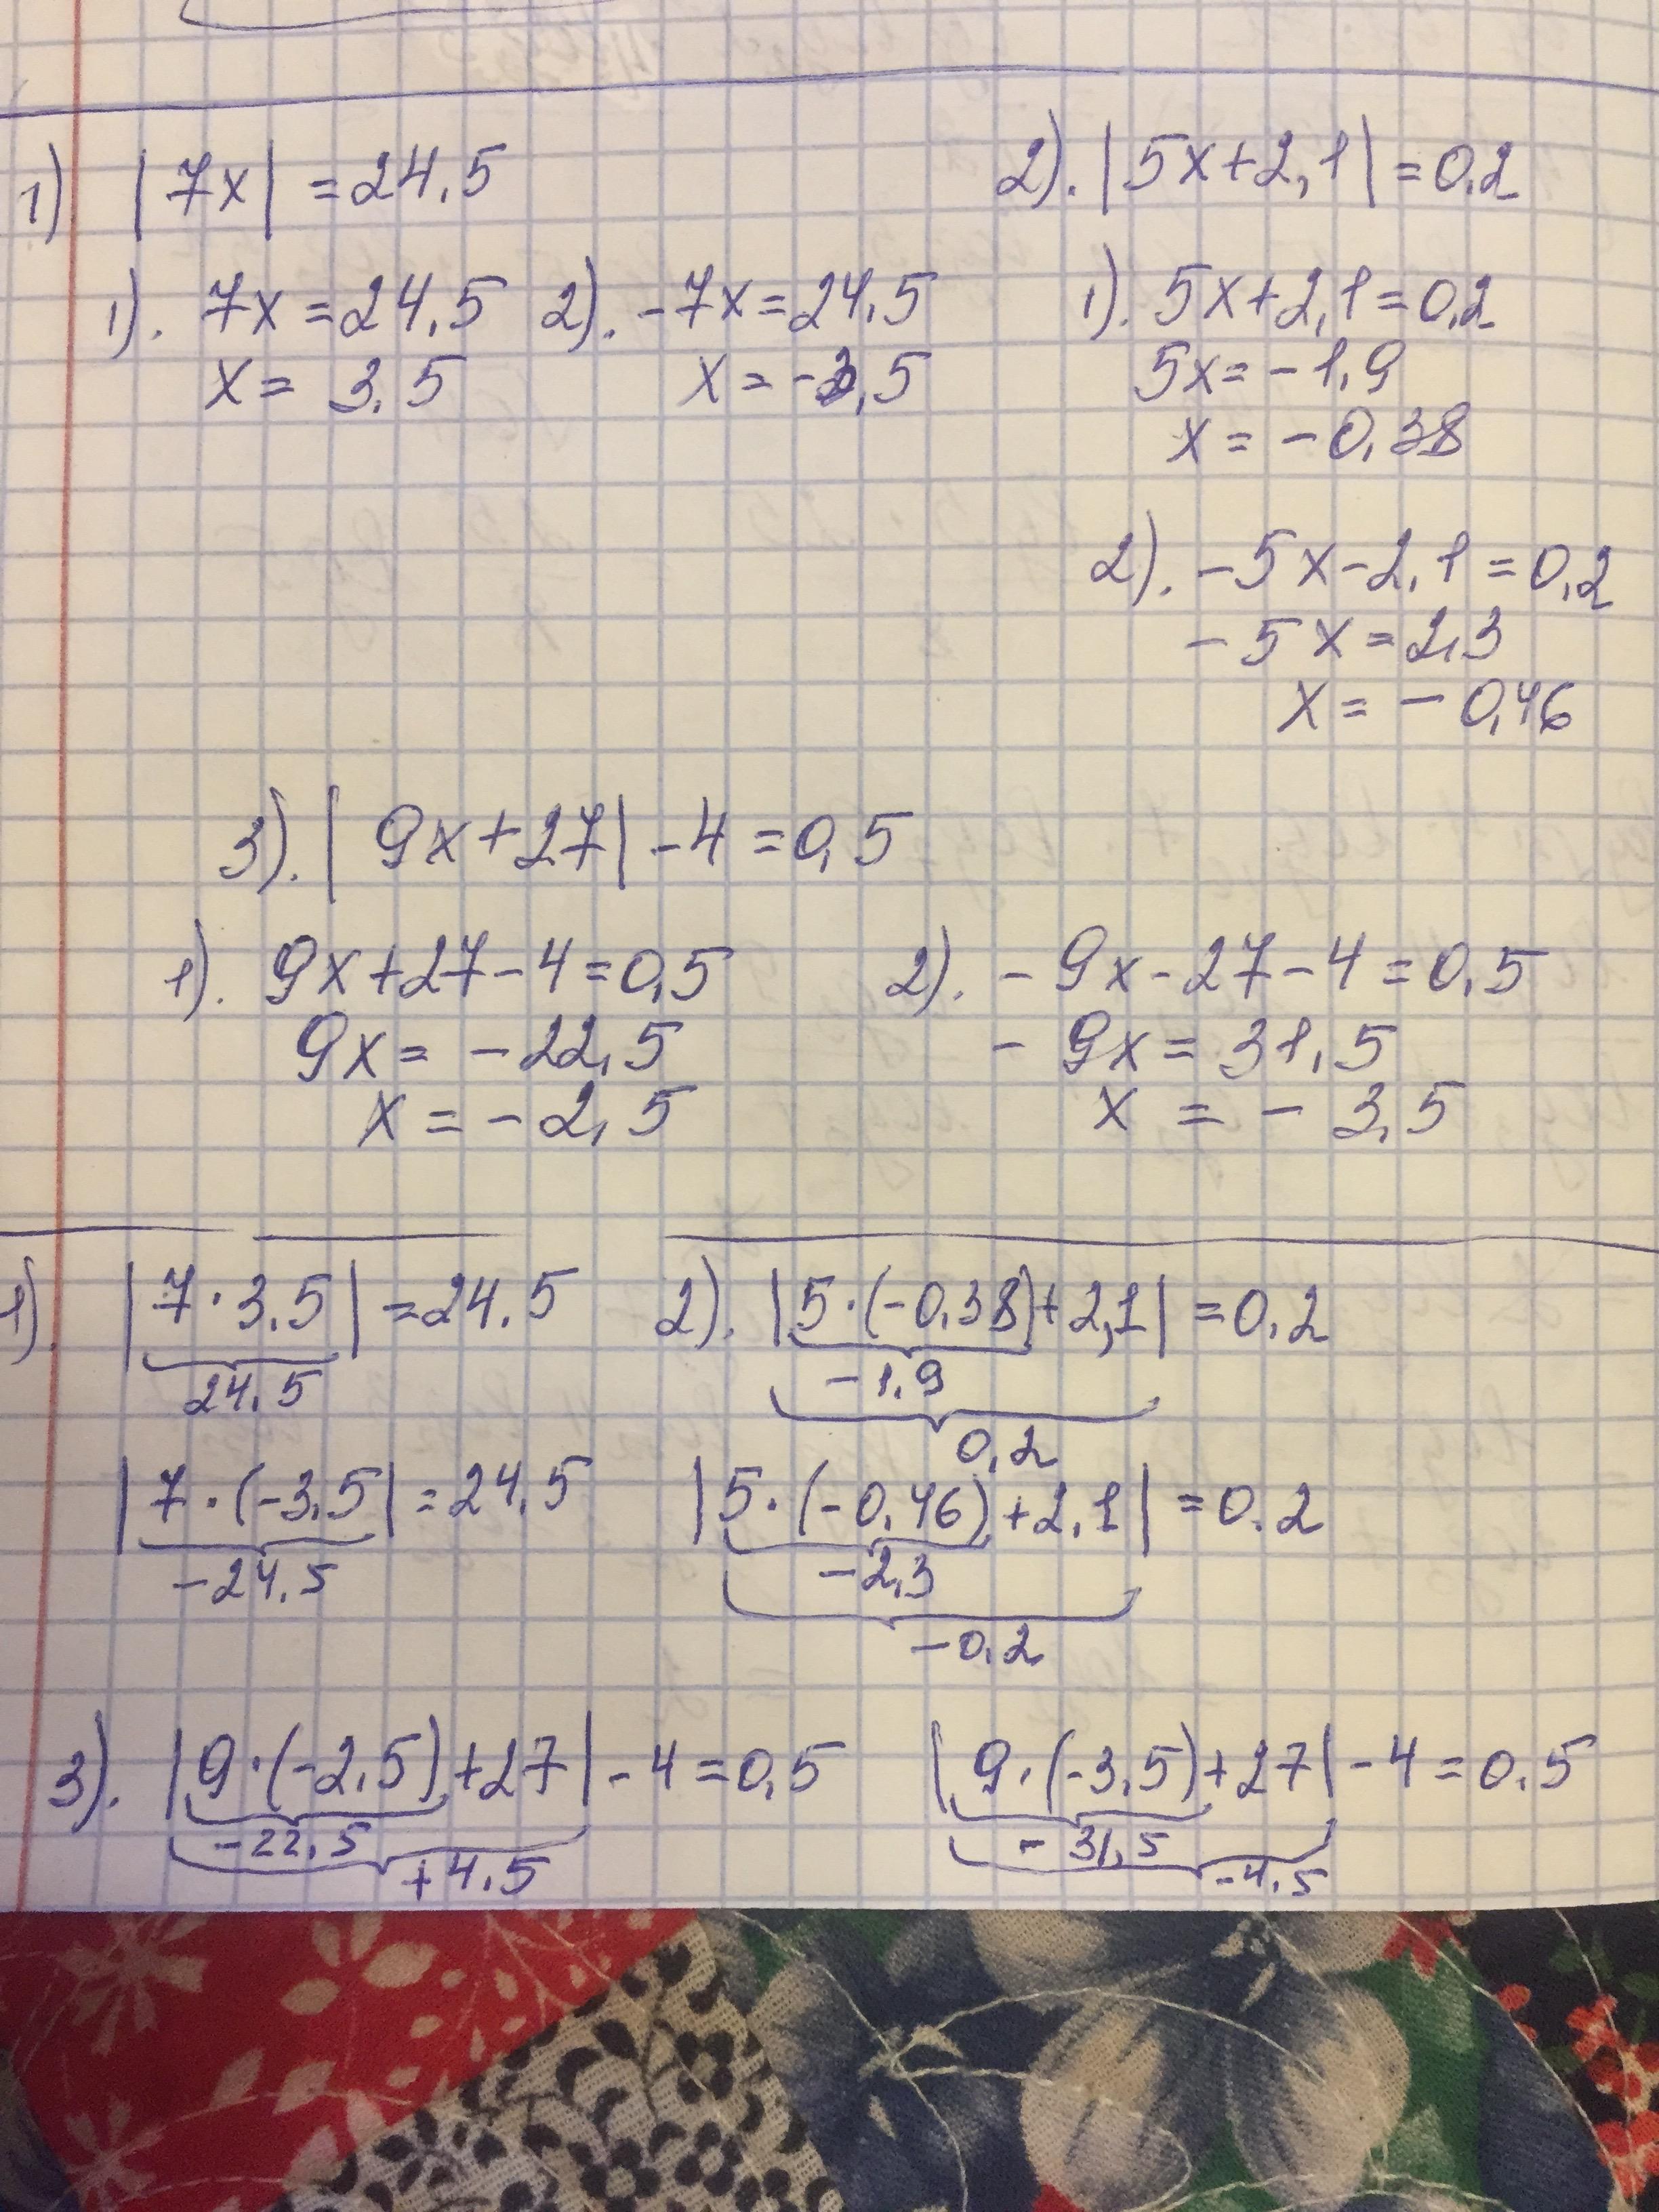 1) |7x| = 24,5
1). 7x = 24,5 2). -7x = 24,5
x = 3,5 x = -3,5
2). |5x+2,1| = 0,2
1). 5x+2,1 = 0,2
5x = -1,9
x = -0,38
2). -5x-2,1 = 0,2
-5x = 2,3
x = -0,46
3). |9x+27| -4 = 0,5
1). 9x+27-4 = 0,5
9x = -22,5
x = -2,5
2). -9x-27-4 = 0,5
-9x = 31,5
x = -3,5
1). |7·3,5| = 24,5
24,5
|7·(-3,5| = 24,5
-24,5
2). |5·(-0,38)+2,1| = 0,2
-1,9
0,2
|5·(-0,46)+2,1| = 0,2
-2,3
-0,2
3). |9·(-2,5)+27| -4 = 0,5
-22,5
+4,5
|9·(-3,5)+27| -4 = 0,5
-31,5
-4,5